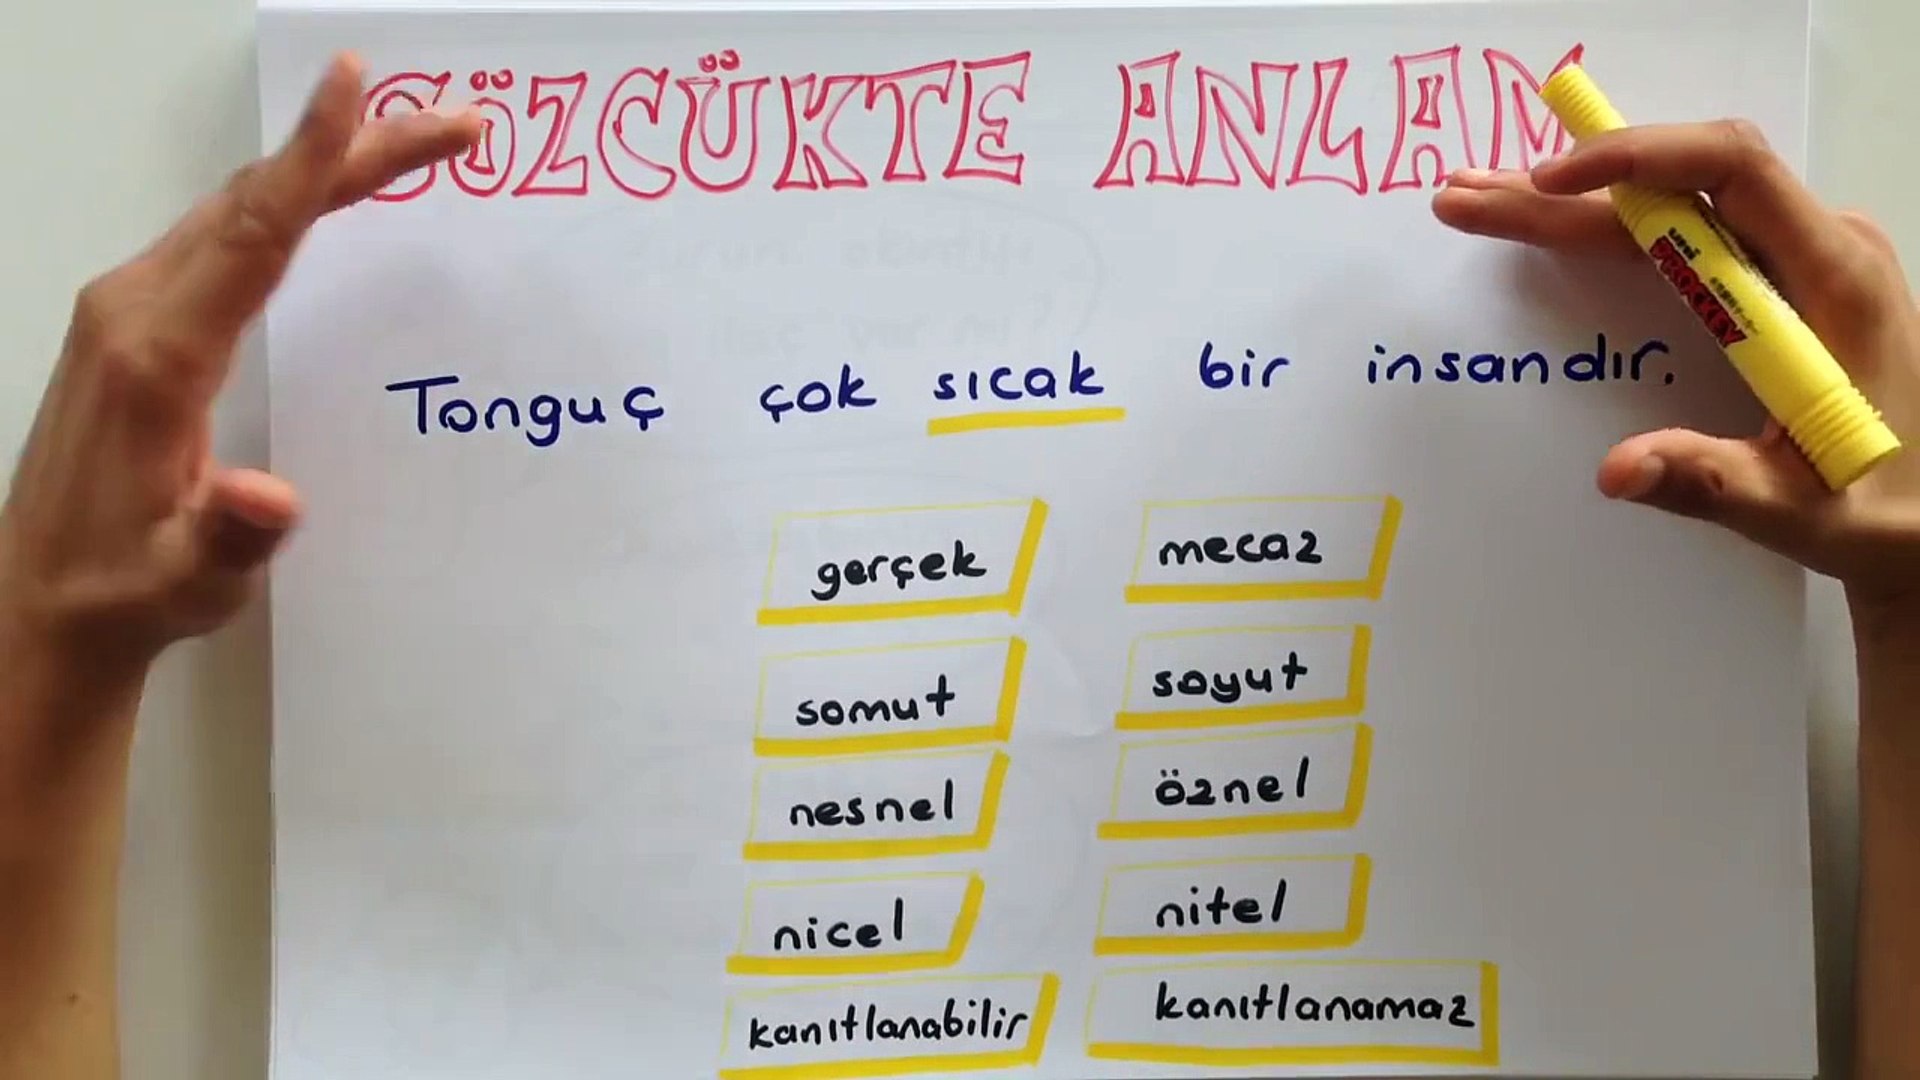 SÖZCÜKTE ANLAM
Tonguç çok sıcak bir insandır.
gerçek mecaz
somut soyut
nesnel öznel
nicel nitel
kanıtlanabilir kanıtlanamaz
uni
PROCKEY